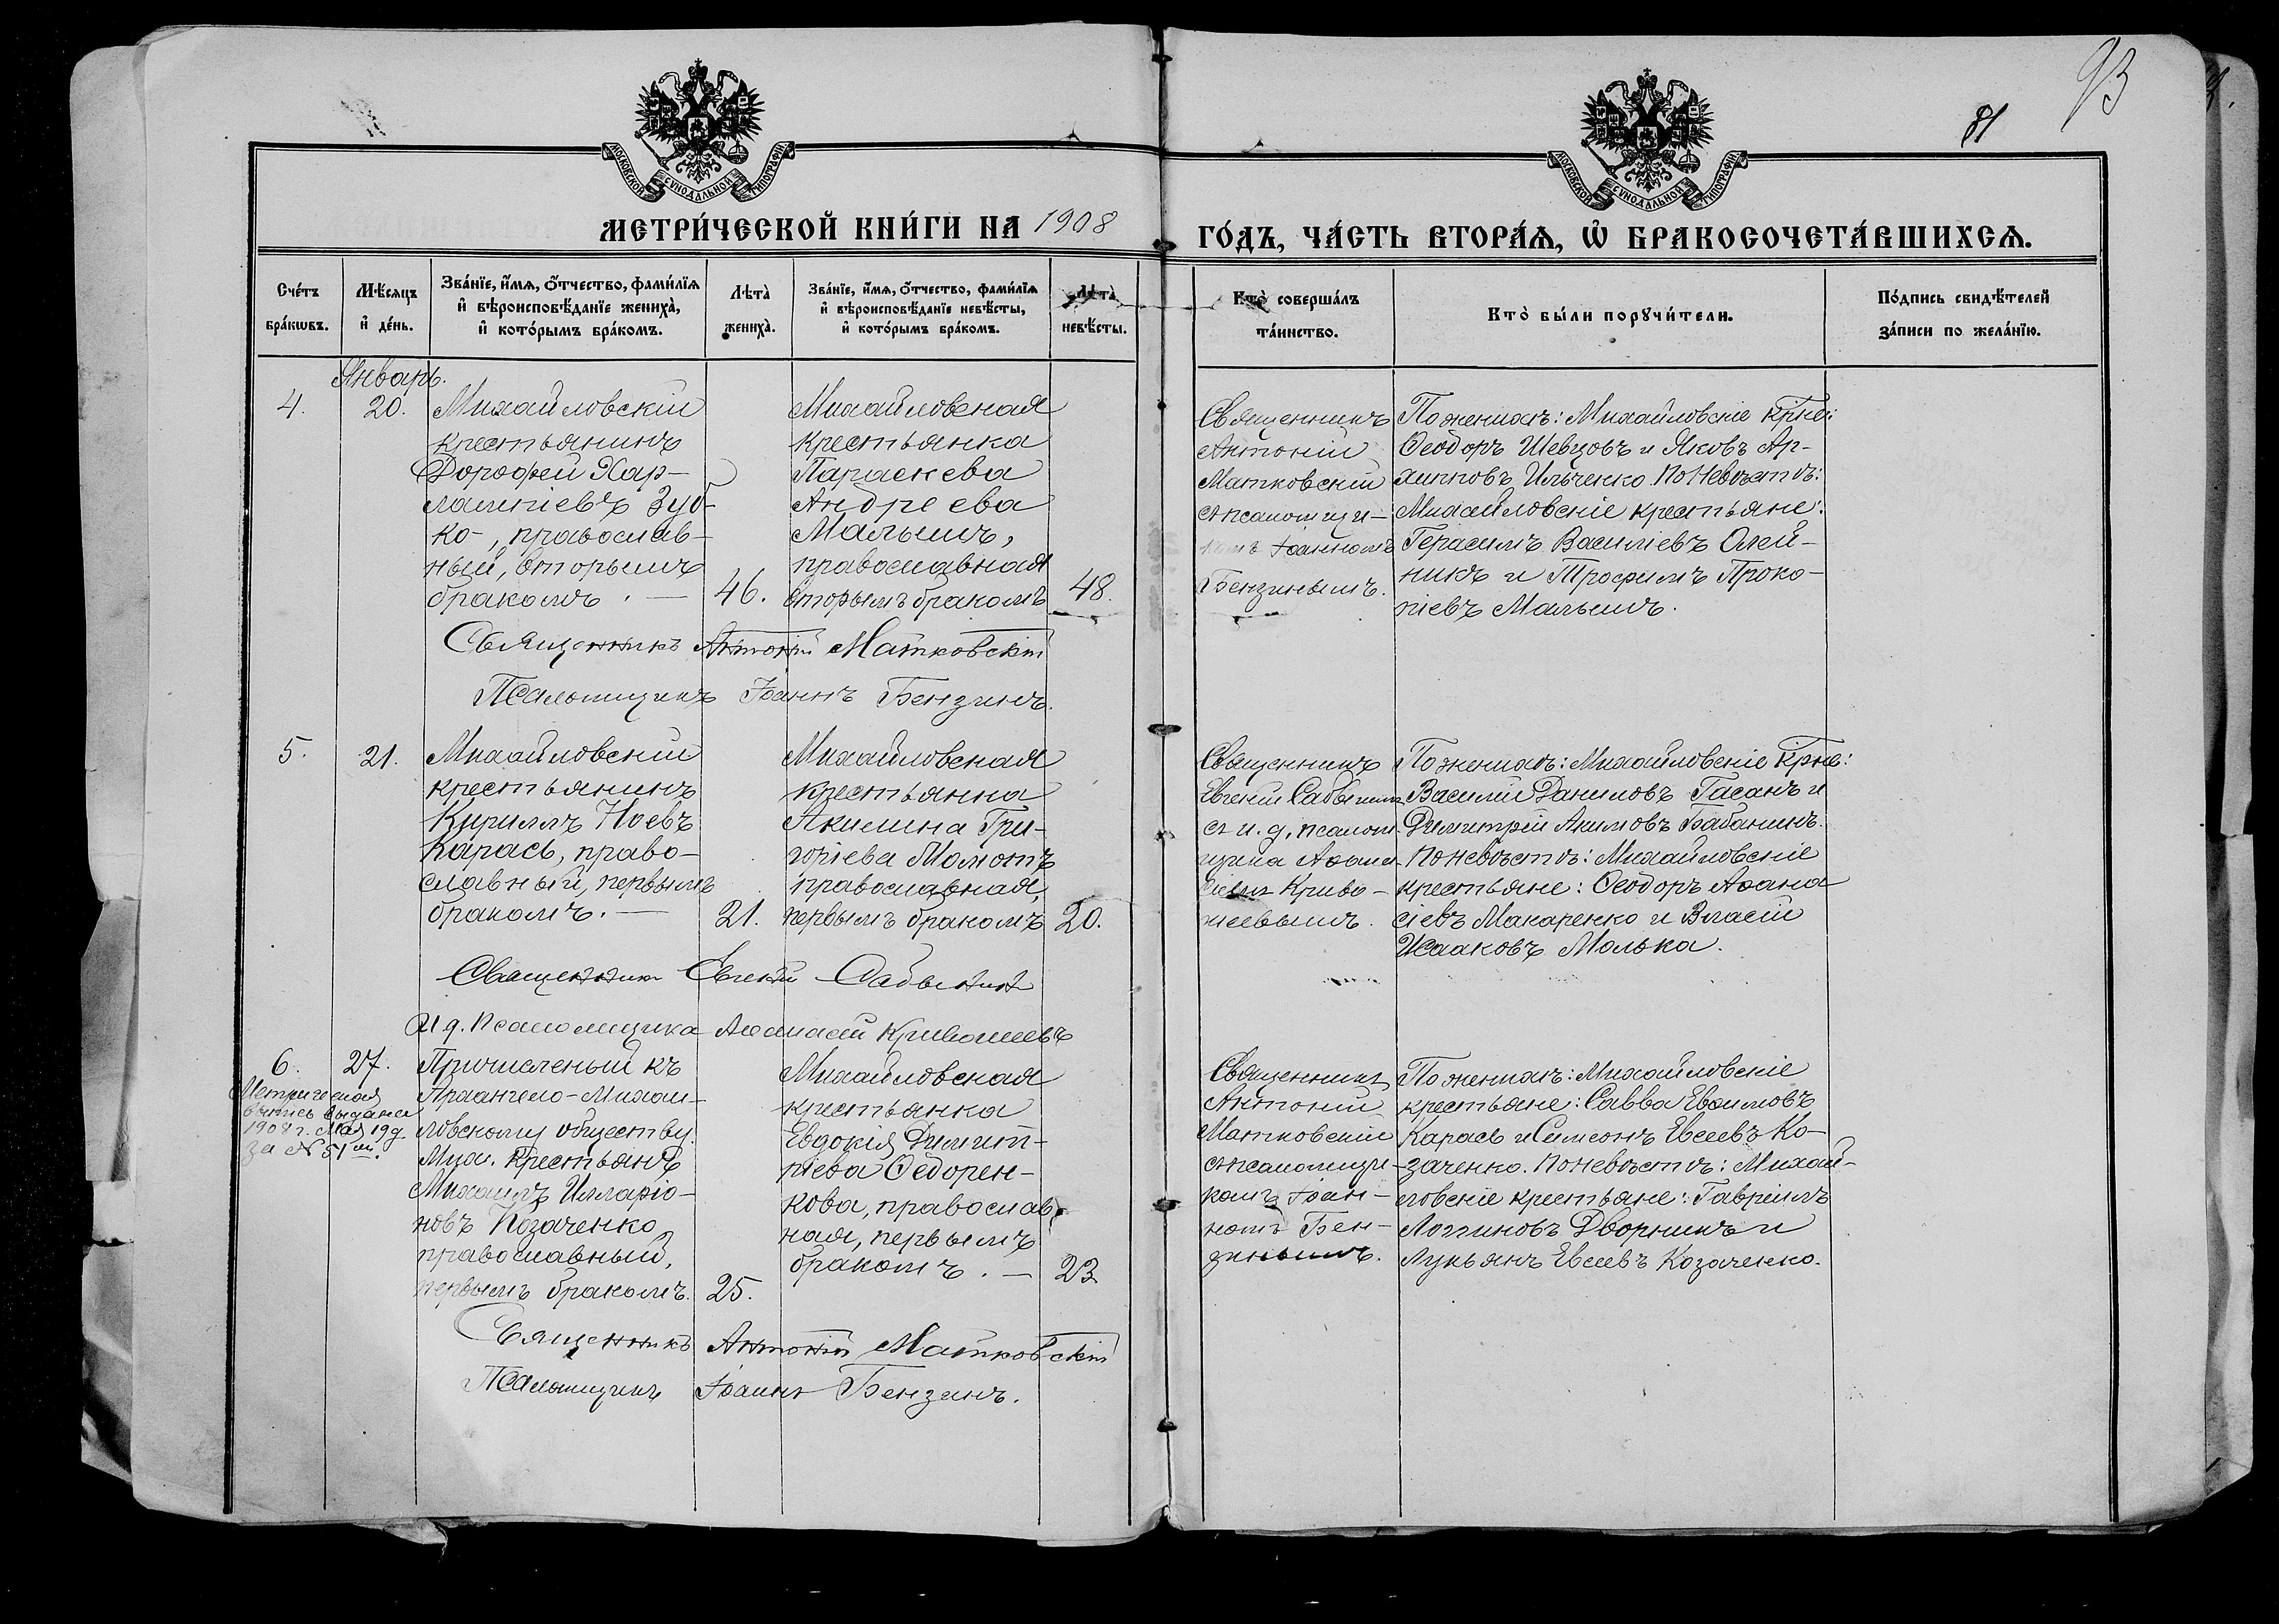 93
81
МОСКОВСКОЙ СУНОДАЛЬНОЙ ТИПОГРАФІИ
МОСКОВСКОЙ СУНОДАЛЬНОЙ ТИПОГРАФІИ
МЕТРИ́ЧЕСКОЙ КНИ́ГИ НА 1908
ГО́ДЪ, ЧА́СТЬ ВТОРА́Ѧ, Ѽ БРАКОСОЧЕТА́ВШИХСѦ.
Сче́тъ
бра́кѡвъ.
Мѣ́сяцъ
и҆ де́нь.
Зва́нїе, и҆́мѧ, ѻ҆́тчество, фами́лїѧ
и҆ вѣроисповѣ́данїе жениха̀,
и҆ кото́рымъ бра́комъ.
Лѣта̀
жениха̀.
Зва́нїе, и҆́мѧ, ѻ҆́тчество, фами́лїѧ
и҆ вѣроисповѣ́данїе невѣ́сты,
и҆ кото́рымъ бра́комъ.
Лѣта̀
невѣ́сты.
Кто̀ соверша́лъ
та́инство.
Кто̀ бы́ли порꙋчи́тели.
По́дпись свидѣ́телей
за́писи по жела́нїю.
Январь.
4.
20.
Михайловскій
крестьянинъ
Дорофей Хар-
лампіевъ Зуб-
ко-, православ-
ный, вторымъ
бракомъ. —
46.
Михайловская
крестьянка
Параскева
Андреева
Малышъ,
православная
вторымъ бракомъ
48.
Священникъ
Антоній
Матковскій
съ псаломщи-
комъ Іоанномъ
Бензинымъ.
По женихѣ: Михайловскіе крне:
Ѳеодоръ Шевцовъ и Яковъ Ар-
хиповъ Ильченко. По невѣстѣ:
Михайловскіе крестьяне:
Герасимъ Василіевъ Олей-
никъ и Трофимъ Проко-
піевъ Малышъ.
Священникъ Антоній Матковскій
Псаломщикъ Іоаннъ Бензинъ.
5.
21.
Михайловскій
крестьянинъ
Кириллъ Ноевъ
Карась, право-
славный, первымъ
бракомъ. —
21.
Михайловская
крестьянка
Акилина Гри-
горіева Момотъ
православная,
первымъ бракомъ
20.
Священникъ
Евгеній Сабынинъ
съ и. д. псалом-
щика Аѳана-
сіемъ Криво-
шеевымъ.
По женихѣ: Михайловскіе крне:
Василій Даниловъ Гасанъ и
Димитрій Акимовъ Бабанинъ.
По невѣстѣ: Михайловскіе
крестьяне: Ѳеодоръ Аѳана
сіевъ Макаренко и Власій
Исааковъ Молька.
Священникъ Евгеній Сабынинъ
И д. Псаломщика Аѳанасій Кривошеевъ
6.
27.
Метрическая
выпись выдана
1908 г. Мая 19 д.
за № 51 м.
Причисленый къ
Архангело-Михай-
ловскому обществу
Мих. крестьянъ
Михаилъ Илларіо-
новъ Козаченко
православный,
первымъ бракомъ.
25.
Михайловская
крестьянка
Евдокія Димит-
ріева Ѳедорен-
кова, православ
ная, первымъ
бракомъ. —
23
Священникъ
Антоній
Матковскій
съ псаломщи-
комъ Іоан-
номъ Бен-
зинымъ.
По женихѣ: Михайловскіе
крестьяне: Савва Евѳимовъ
Карась и Симеонъ Евсеевъ Ко-
заченко. По невѣстѣ: Михай-
ловскіе крестьяне: Гавріилъ
Логиновъ Дворникъ и
Лукьянъ Евсеевъ Козаченко.
Священникъ Антоній Матковскій
Псаломщикъ Іоаннъ Бензинъ.